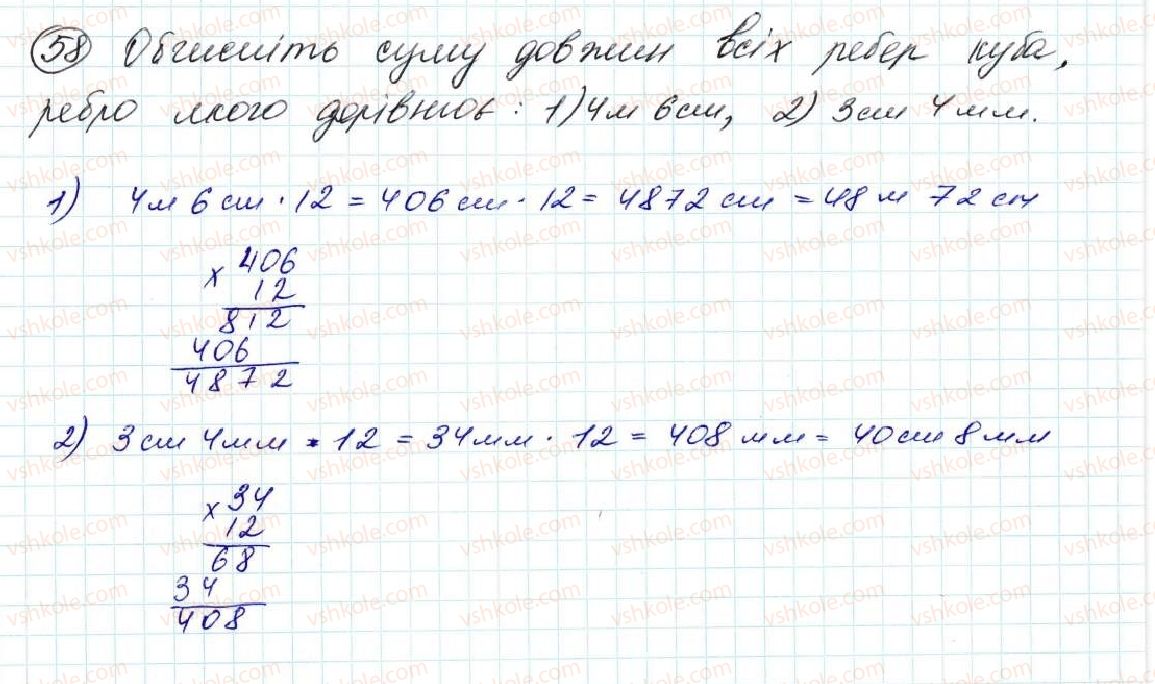 58 Обчисліть суму довжин всіх ребер куба,
ребро якого дорівнює: 1) 4м 6см, 2) 3см 4мм.
1) 4м 6см · 12 = 406см · 12 = 4872 см = 48 м 72 см
× 406
12
812
406
4872
2) 3см 4мм · 12 = 34мм · 12 = 408 мм = 40см 8мм
× 34
12
68
34
408
vshkole.com